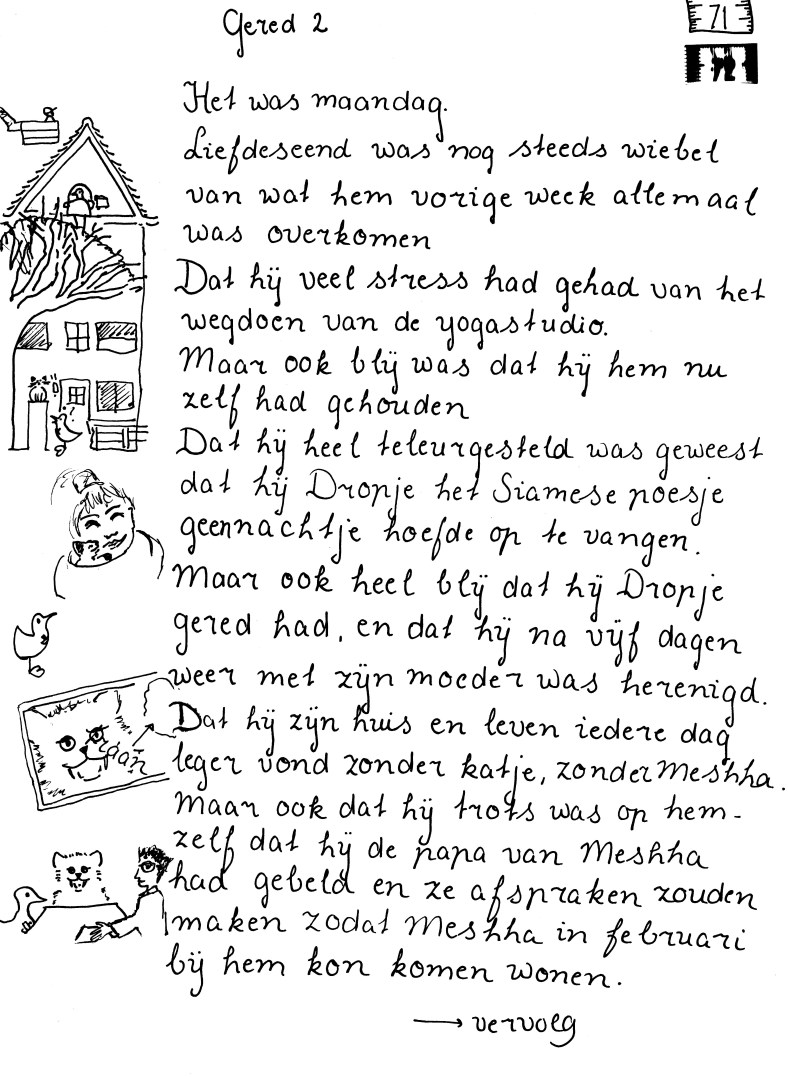 Gered 2
71
72
Het was maandag.
Liefdeseend was nog steeds wiebel
van wat hem vorige week allemaal
was overkomen
Dat hij veel stress had gehad van het
wegdoen van de yogastudio.
Maar ook blij was dat hij hem nu
zelf had gehouden
Dat hij heel teleurgesteld was geweest
dat hij Dropje het Siamese poesje
geennachtje hoefde op te vangen.
Maar ook heel blij dat hij Dropje
gered had, en dat hij na vijf dagen
weer met zijn moeder was herenigd.
Dat hij zijn huis en leven iedere dag
leger vond zonder katje, zonder Meshha.
Maar ook dat hij trots was op hem-
zelf dat hij de papa van Meshha
had gebeld en ze afspraken zouden
maken zodat Meshha in februari
bij hem kon komen wonen.
→ vervolg